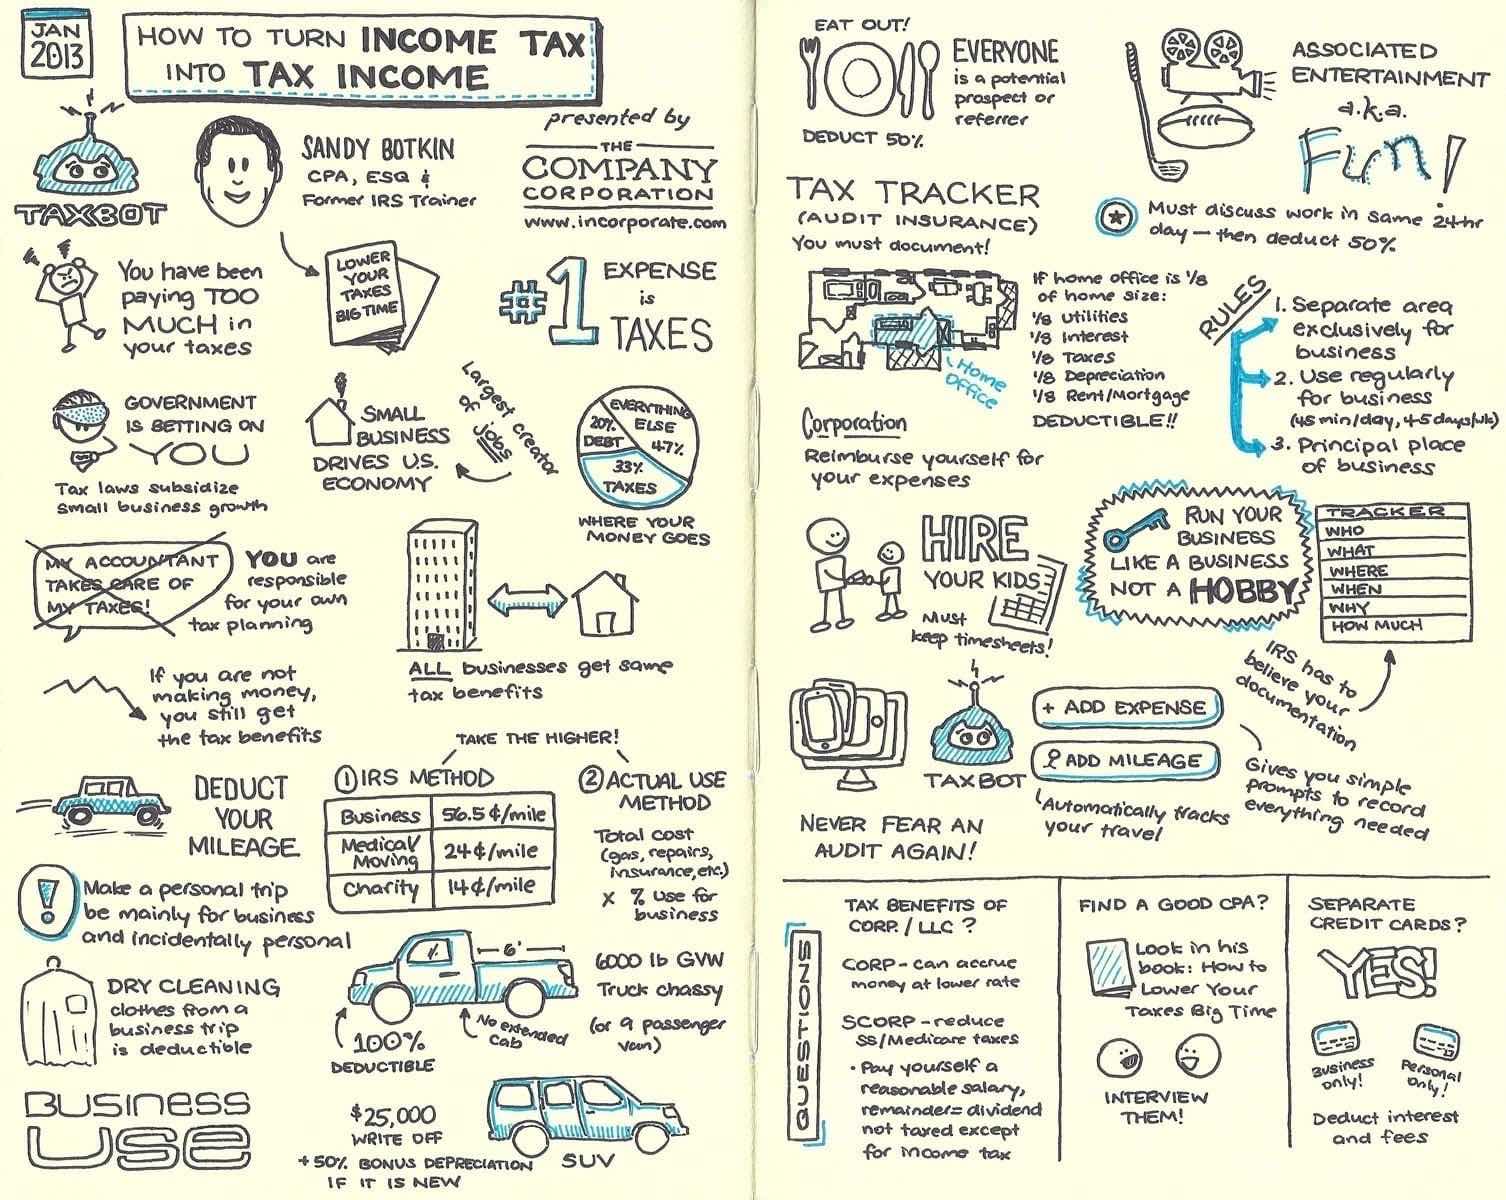 JAN
2013
HOW TO TURN INCOME TAX
INTO TAX INCOME
TAXBOT
SANDY BOTKIN
CPA, ESQ &
Former IRS Trainer
presented by
THE
COMPANY
CORPORATION
www.incorporate.com
You have been
paying TOO
MUCH in
your taxes
LOWER
YOUR
TAXES
BIG TIME
#1
EXPENSE
is
TAXES
GOVERNMENT
IS BETTING ON
YOU
Tax laws subsidize
small business growth
SMALL
BUSINESS
DRIVES U.S.
ECONOMY
Largest creator
of
jobs
EVERYTHING
ELSE
47%
20%
DEBT
33%
TAXES
WHERE YOUR
MONEY GOES
MY ACCOUNTANT
TAKES CARE OF
MY TAXES!
YOU are
responsible
for your own
tax planning
ALL businesses get same
tax benefits
If you are not
making money,
you still get
the tax benefits
DEDUCT
YOUR
MILEAGE
TAKE THE HIGHER!
1 IRS METHOD
Business 56.5¢/mile
Medical/
Moving 24¢/mile
Charity 14¢/mile
2 ACTUAL USE
METHOD
Total cost
(gas, repairs,
insurance, etc.)
x % use for
business
!
Make a personal trip
be mainly for business
and incidentally personal
DRY CLEANING
clothes from a
business trip
is deductible
6'
100%
DEDUCTIBLE
No extended
cab
6000 lb GVW
Truck chassy
(or 9 passenger
van)
BUSINESS
USE
$25,000
WRITE OFF
+50% BONUS DEPRECIATION
IF IT IS NEW
SUV
EAT OUT!
DEDUCT 50%
EVERYONE
is a potential
prospect or
referrer
ASSOCIATED
ENTERTAINMENT
a.k.a.
Fun!
Must discuss work in same 24-hr
day — then deduct 50%
TAX TRACKER
(AUDIT INSURANCE)
You must document!
Home
Office
If home office is 1/8
of home size:
1/8 Utilities
1/8 Interest
1/8 Taxes
1/8 Depreciation
1/8 Rent/Mortgage
DEDUCTIBLE!!
RULES
1. Separate area
exclusively for
business
2. Use regularly
for business
(45 min/day, 4-5 days/wk)
3. Principal place
of business
Corporation
Reimburse yourself for
your expenses
HIRE
YOUR KIDS
Must
keep timesheets!
RUN YOUR
BUSINESS
LIKE A BUSINESS
NOT A HOBBY
TRACKER
WHO
WHAT
WHERE
WHEN
WHY
HOW MUCH
IRS has to
believe your
documentation
TAXBOT
+ ADD EXPENSE
ADD MILEAGE
Automatically tracks
your travel
Gives you simple
prompts to record
everything needed
NEVER FEAR AN
AUDIT AGAIN!
QUESTIONS
TAX BENEFITS OF
CORP./LLC?
CORP - can accrue
money at lower rate
SCORP - reduce
SS/Medicare taxes
• Pay yourself a
reasonable salary,
remainder = dividend
not taxed except
for income tax
FIND A GOOD CPA?
Look in his
book: How to
Lower Your
Taxes Big Time
INTERVIEW
THEM!
SEPARATE
CREDIT CARDS?
YES!
Business
only!
Personal
only!
Deduct interest
and fees